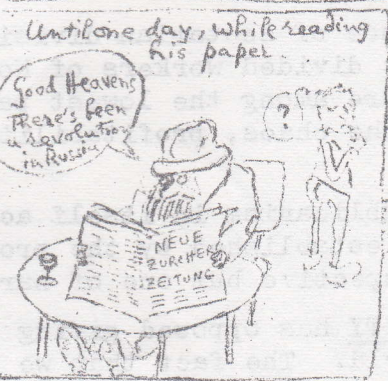 Until one day, while reading
his paper
Good Heavens
There's been
a revolution
in Russia
?
NEUE
ZURCHER
ZEITUNG